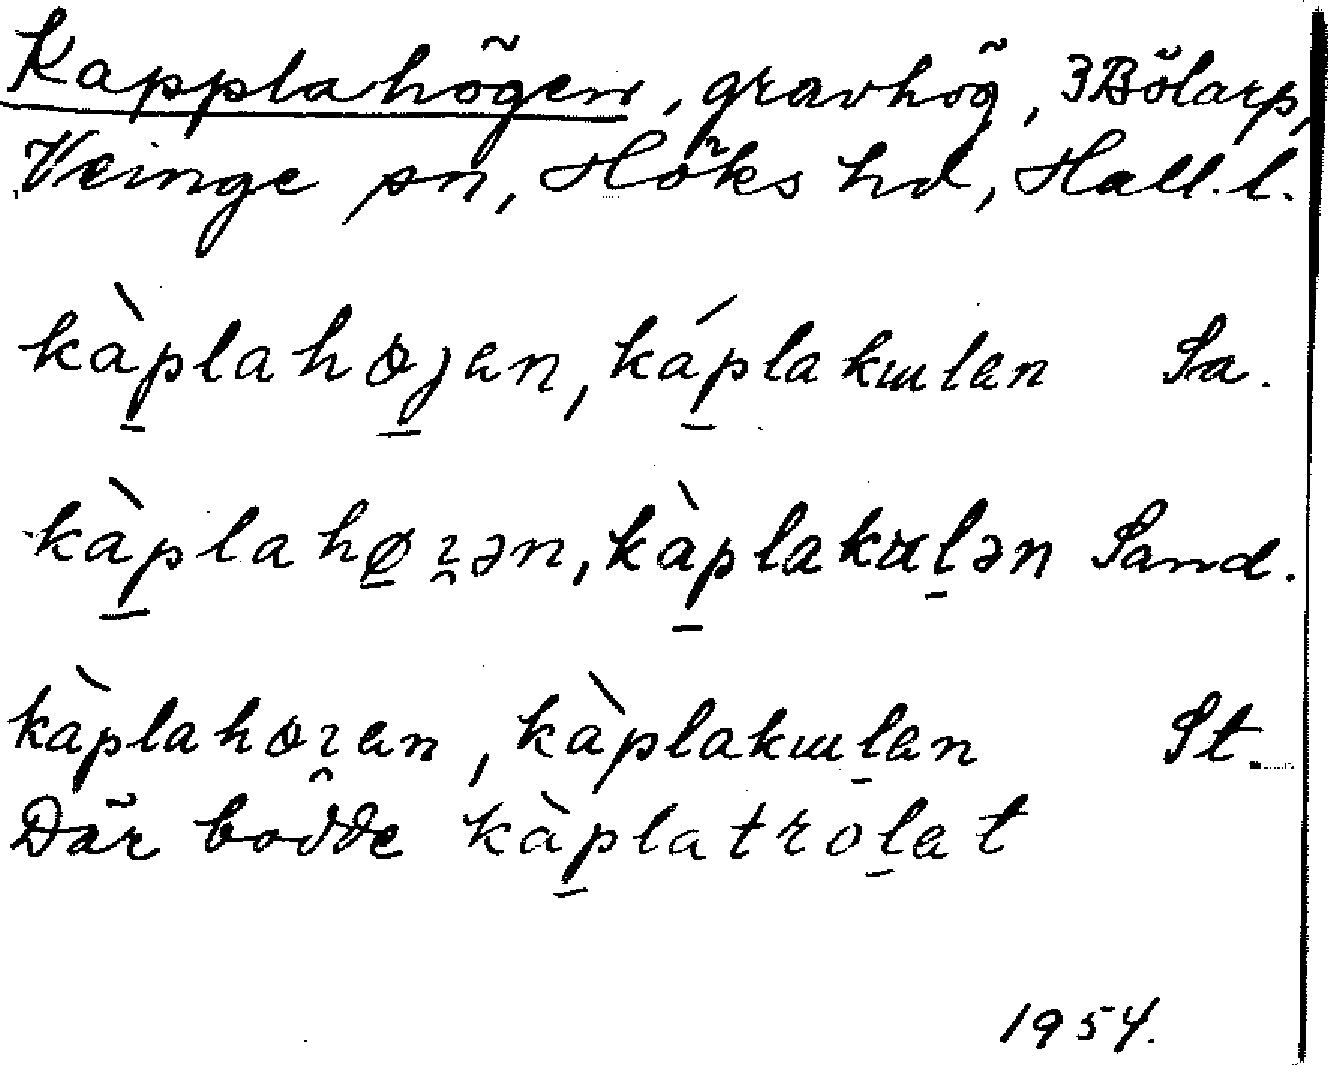 Kapplahögen, gravhög, 3 Bölarp,
Veinge sn, Höks hd, Hall. l.
kàp̲lahɵ̲ȷen, káp̲lakɯlen Sa.
kàp̲lahø̲ɿ̯ən, kàp̲lakɯl̲ən Sand.
kàplahɵɿ̯en, kàplakɯl̲en St.
Där bodde kàp̲latrol̲et
1954.